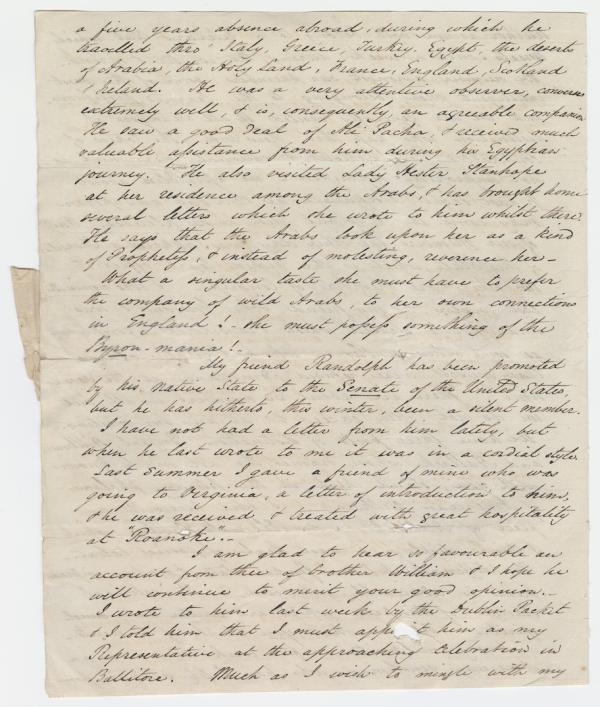 a five years absence abroad, during which he
travelled thro' Italy, Greece, Turkey, Egypt, the deserts
of Arabia, the Holy Land, France, England, Scotland
& Ireland. He was a very attentive observer, converses
extremely well, & is, consequently, an agreable companion
He saw a good deal of Ali Pacha, & received much
valuable assistance from him during his Egyptian
journey. He also visited Lady Hester Stanhope
at her residence among the Arabs, & has brought home
several letters which she wrote to him whilst there.
He says that the Arabs look upon her as a kind
of Prophetess, & instead of molesting, reverence her -
What a singular taste she must have to prefer
the company of wild Arabs, to her own connections
in England! - she must possess something of the
Byron-mania! -
My friend Randolph has been promoted
by his native State to the Senate of the United States,
but he has hitherto, this winter, been a silent member.
I have not had a letter from him lately, but
when he last wrote to me it was in a cordial style.
Last Summer I gave a friend of mine who was
going to Virginia, a letter of introduction to him,
& he was received & treated with great hospitality
at "Roanoke". -
I am glad to hear so favourable an
account from thee of brother William & I hope he
will continue to merit your good opinion. -
I wrote to him last week by the Dublin Packet
& I told him that I must appoint him as my
Representative at the approaching celebration in
Ballitore. Much as I wish to mingle with my